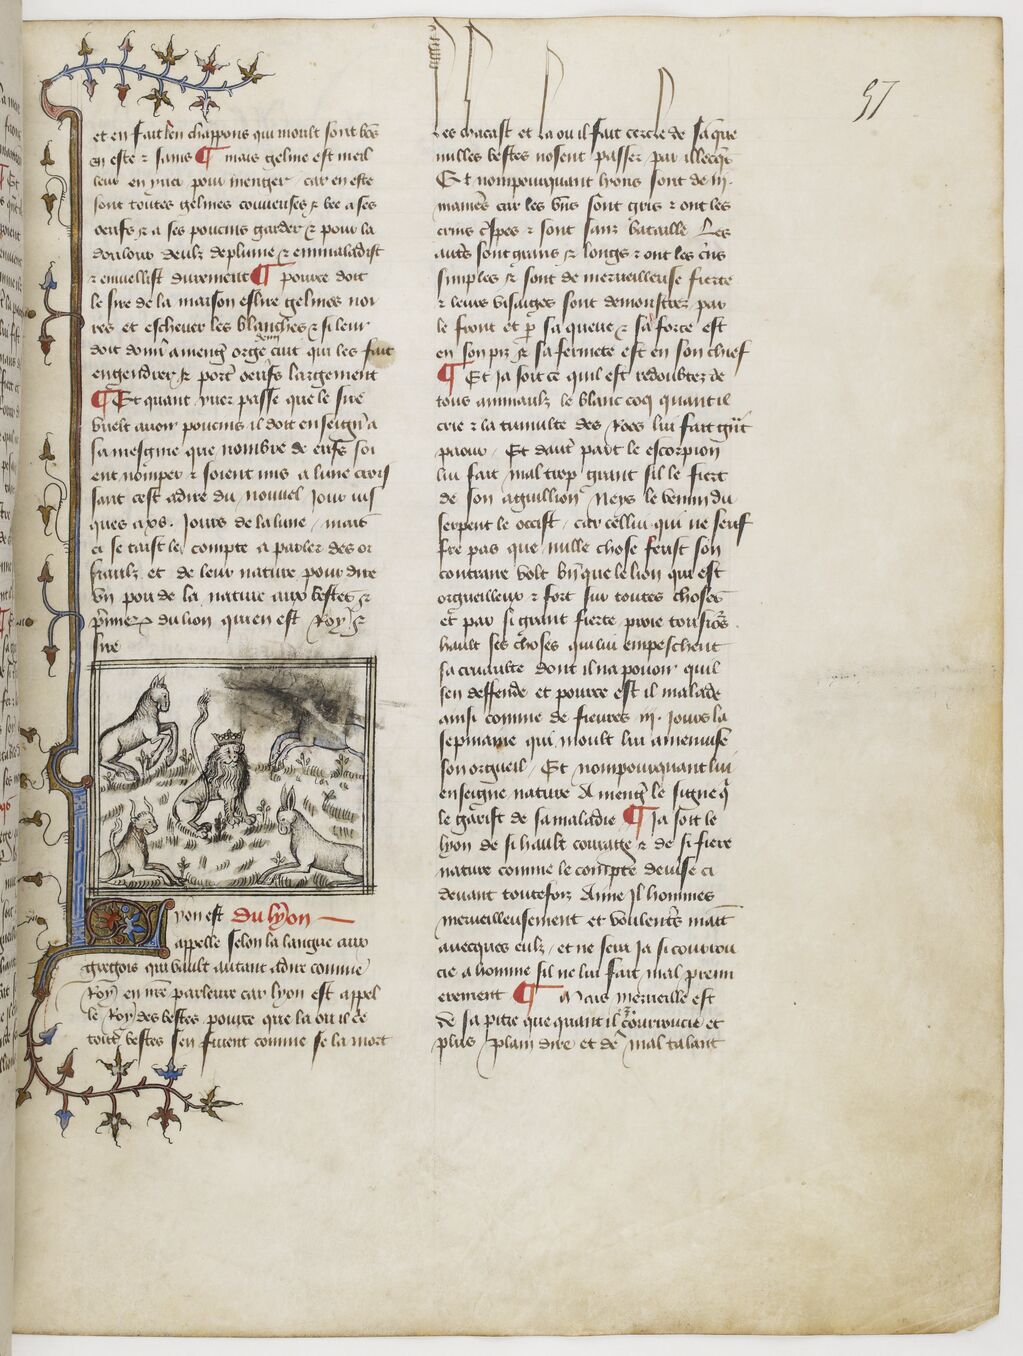 57
et en fait len chappons qui moult sont bons
en este ⁊ sains ¶ mais geline est meil
leur en yver pour menger / car en este
sont toutes gelines couveuses ⁊ bee a ses
oeufs ⁊ a ses poucins garder ⁊ pour la
doulour deulz deplume ⁊ enmaladist
⁊ enviellist durement ¶ pource doit
le sire de la maison eslire gelines noi
res et eschever les blanches ⁊ si leur
doit donner a mengr orge cuit qui les fait
engendrer ⁊ porter oeufs largement
¶ Et quant yver passe que le sire
vuelt avoir poucins il doit enseigner a
sa mesgnie que nombre de oeufs soi
ent nomper ⁊ soient mis a lune crois
sant cest adire du nouvel jour jus
ques a xv. jours de la lune / mais
ci se taist le compte a parler des oi
seaulz et de leur nature pour dire
un pou de la nature aux bestes ⁊
premier du lion qui en est Roy ⁊
sire
du lyon
yon est
appelle selon la langue aux
gregois qui vault autant adire comme
Roy en nre parleure car lyon est appel
le Roy des bestes pource que la ou il crie
toutes bestes sen fuient comme se la mort
les chacast et la ou il fait cercle de sa que
nulles bestes nosent passer par illecques
Et nompourquant lyons sont de iij.
manieres car les uns sont gris ⁊ ont les
crins crespes ⁊ sont sans bataille Les
autres sont grans ⁊ longs ⁊ ont les crins
simples ⁊ sont de merveilleuse fierte
⁊ leurs visaiges sont demonstrez par
le front et par sa queue ⁊ sa force est
en son piz ⁊ sa fermete est en son chief
¶ Et ja soit ce quil est redoubtez de
tous animaulz le blanc coq quant il
crie ⁊ la tumulte des Roes lui fait grant
paour / Et dautre part le escorpion
lui fait mal trop grant sil le fiert
de son aguillion Neys le venin du
serpent le occist / car cellui qui ne seuf
fre pas que nulle chose feust son
contraire volt bien que le lion qui est
orgueilleux ⁊ fort sur toutes choses
et par si grant fierte proie tousiours
hault ses choses qui lui empeschent
sa cruaulte dont il na pouoir quil
sen deffende et pource est il malade
ainsi comme de fievres iij. jours la
sepmaine qui moult lui amenuise
son orgueil / Et nompourquant lui
enseigne nature A menger le signe qui
le garist de sa maladie ¶ Ja soit le
lyon de si hault courage ⁊ de si fiere
nature comme le compte devise ci
devant toutefoiz Aime Il hommes
merveilleusement et voulentiers maint
avecques eulz / et ne sera ja si courrou
cie a homme sil ne lui fait mal premi
erement ¶ Mais merveille est
de sa pitie que quant il est courroucie et
plus plain dire et de mal talant